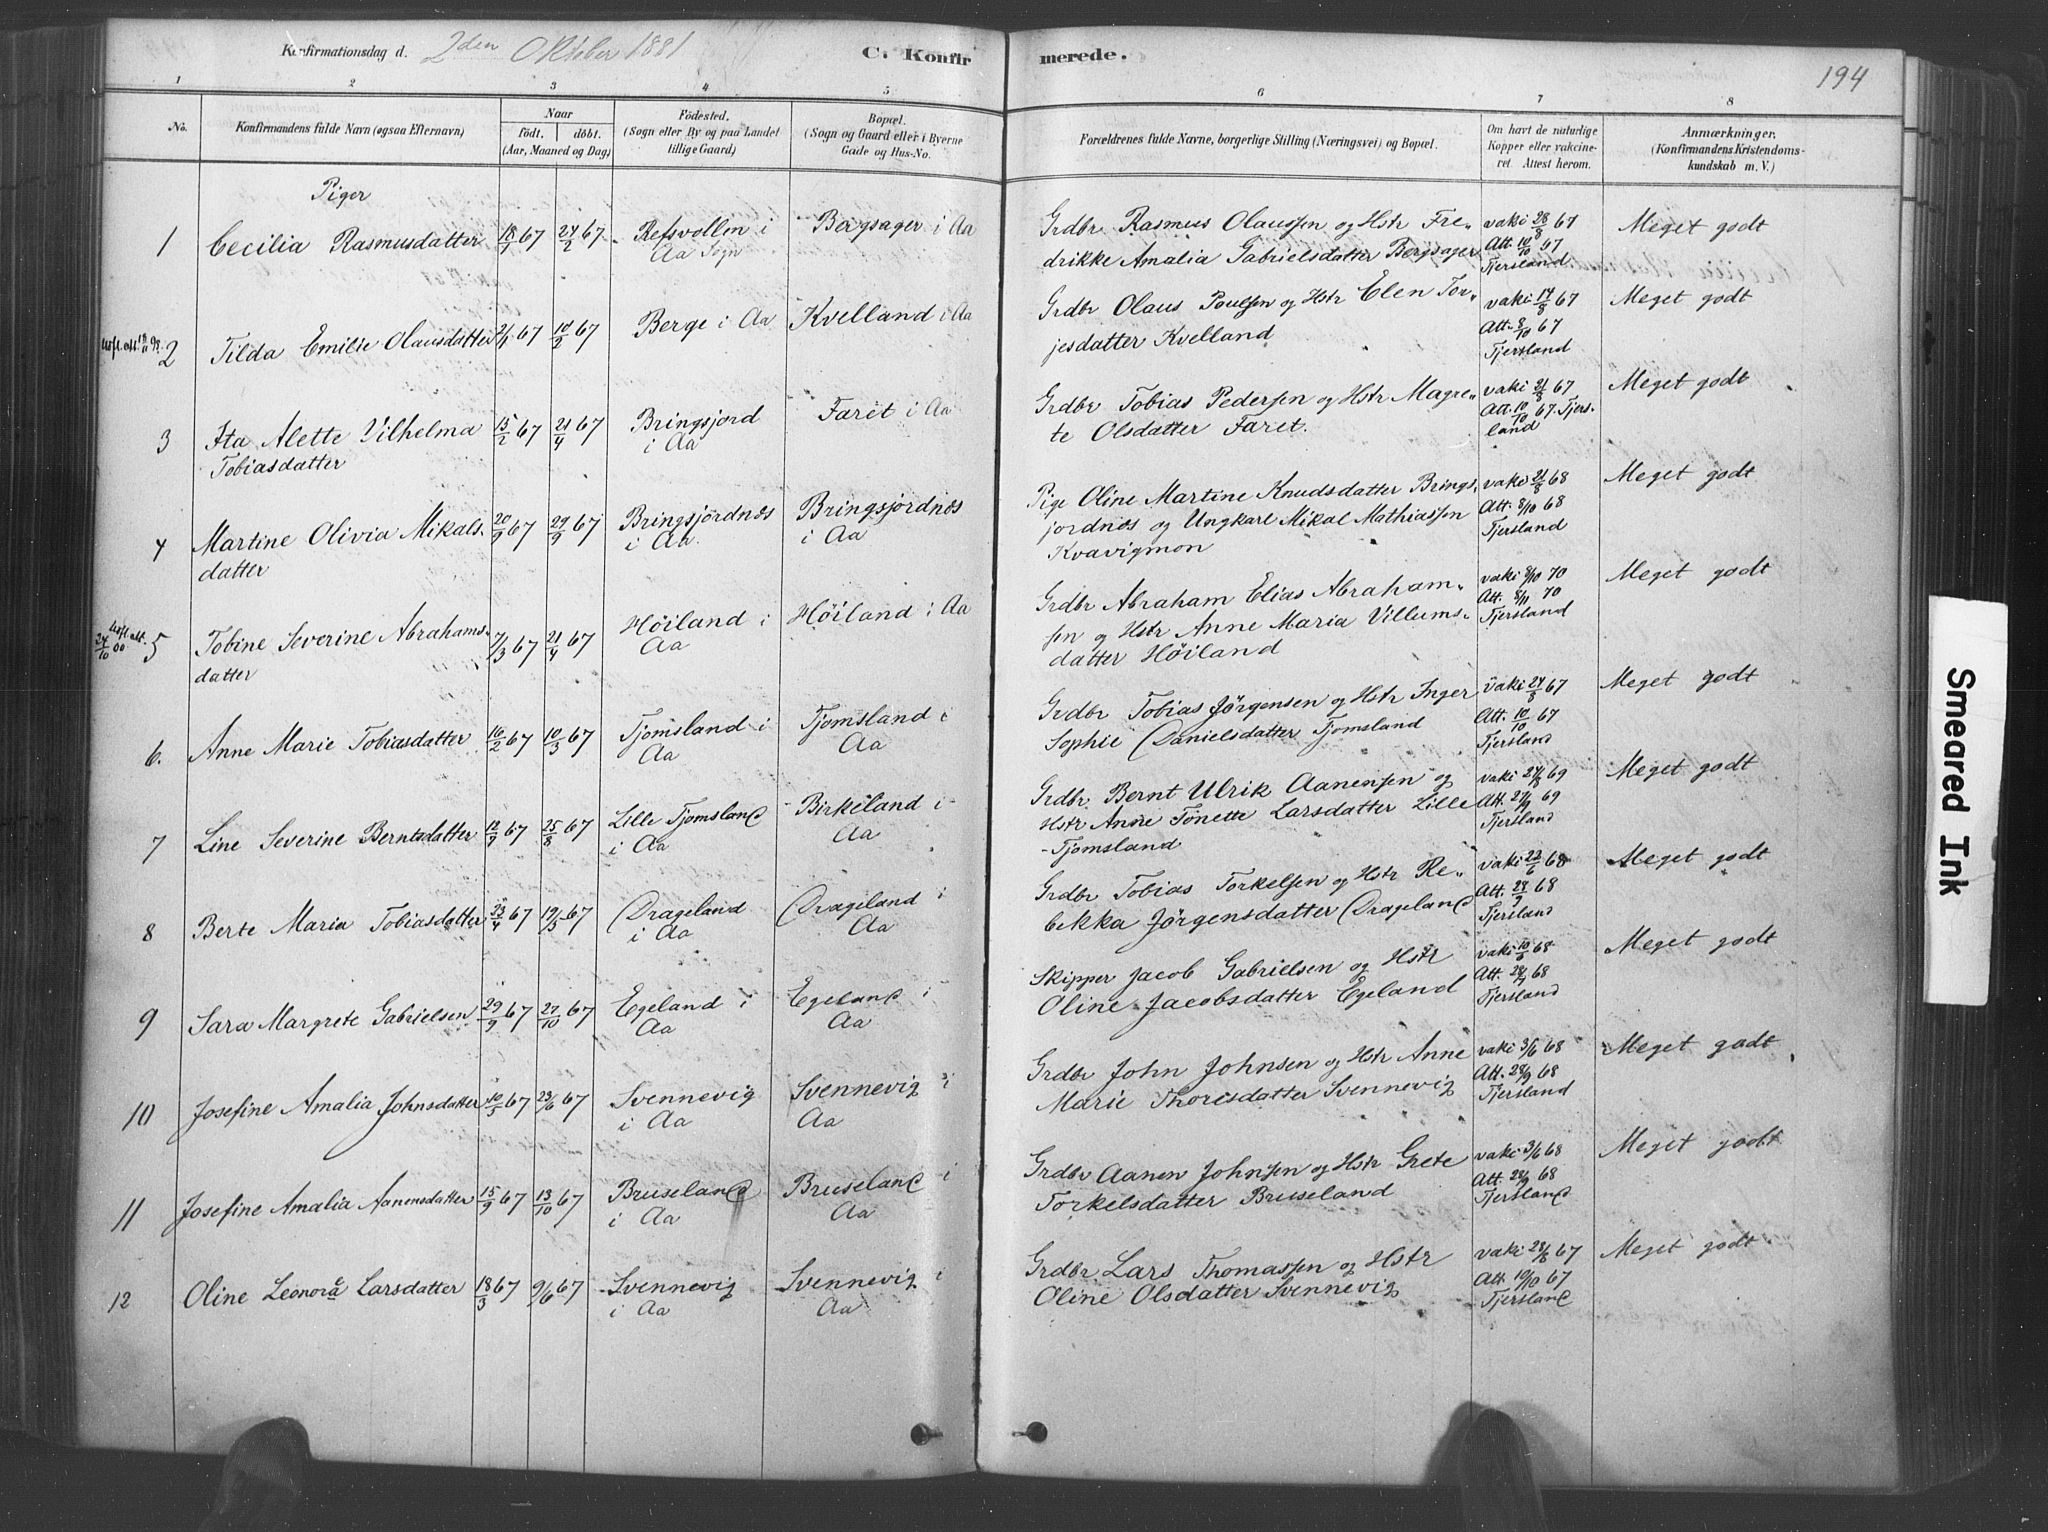 Konfirmationsdag d. 2den Oktober 1881 C. Konfirmerede. 194
1 2 3 4 5 6 7 8
No. Konfirmandens fulde Navn (ogsaa Efternavn) Naar födt. döbt. (Aar, Maaned og Dag) Födested. (Sogn eller By og paa Landet tillige Gaard) Bopæl. (Sogn og Gaard eller i Byerne Gade og Hus-No. Forældrenes fulde Navne, borgerlige Stilling (Næringsvei) og Bopæl. Om havt de naturlige Kopper eller vakcineret Attest herom. Anmærkninger. (Konfirmandens Kristendomskundskab m. V.)
Piger
1 Cecilia Rasmusdatter 18/1 67 24/2 67 Refsvollen i Aa Sogn Bergsager i Aa Grdbr Rasmus Olaussen og Hstr Fredrikke Amalia Gabrielsdatter Bergsager vaki 28/8 67 Att. 10/10 67 Tjersland Meget godt
2 Tilda Emilie Olausdatter 2/1 67 10/2 67 Berge i Aa Kvelland i Aa Grdbr Olaus Poulsen og Hstr Elen Torjesdatter Kvelland vaki 17/8 67 Att. 8/10 67 Tjersland Meget godt
3 Ita Alette Vilhelma Tobiasdatter 15/2 67 21/4 67 Bringsjord i Aa Faret i Aa Grdbr Tobias Pedersen og Hstr Magrete Olsdatter Faret. vaki 21/8 67 Att. 10/10 67. Tjersland Meget godt
4 Martine Olivia Mikalsdatter 20/9 67 29/9 67 Bringsjordnæs i Aa Bringsjordnæs i Aa Pige Oline Martine Knudsdatter Bringsjordnæs og Ungkarl Mikal Mathiassen Kvavigmon vaki 21/8 68 Att. 8/10 68 Tjersland Meget godt
5 Tobine Severine Abrahamsdatter 7/3 67 21/4 67 Höiland i Aa Höiland i Aa Grdbr Abraham Elias Abrahamsen og Hstr Anne Maria Villumsdatter Höiland vaki 8/10 70 Att. 8/11 70 Tjersland Meget godt
6. Anne Marie Tobiasdatter 16/2 67 10/3 67 Tjomsland i Aa Tjomsland i Aa Grdbr Tobias Jörgensen og Hstr Inger Sophie Danielsdatter Tjomsland vaki 24/8 67 Att. 10/10 67 Tjersland Meget godt
7 Line Severine Berntsdatter 12/7 67 25/8 67 Lille Tjomsland i Aa Birkeland i Aa Grdbr. Bernt Ulrik Aanensen og Hstr Anne Tönette Larsdatter Lille Tjomsland vaki 27/8 69 Att. 27/9 69 Tjersland Meget godt
8 Berte Maria Tobiasdatter 23/4 67 19/5 67 Drageland i Aa Drageland i Aa Grdbr Tobias Torkelsen og Hstr Rebekka Jörgensdatter Drageland vaki 22/6 68 Att. 28/9 68 Tjersland Meget godt
9 Sara Margrete Gabrielsen 29/9 67 27/10 67 Egeland i Aa Egeland i Aa Skipper Jacob Gabrielsen og Hstr Oline Jacobsdatter Egeland vaki 10/6 68 Att. 28/9 68 Tjersland Meget godt
10 Josefine Amalia Johnsdatter 10/5 67 23/6 67 Svennevig i Aa Svennevig i Aa Grdbr John Johnsen og Hstr Anne Marie Thoresdatter Svennevig vaki 3/6 68 Att. 28/9 68 Tjersland Meget godt
11 Josefine Amalia Aanensdatter 15/9 67 13/10 67 Bruseland i Aa Bruseland i Aa Grdbr Aanen Johnsen og Hstr Grete Torkelsdatter Bruseland vaki 3/6 68 Att. 28/9 68 Tjersland Meget godt
12 Oline Leonora Larsdatter 18/3 67 9/6 67 Svennevig i Aa Svennevig i Aa Grdbr. Lars Thomassen og Hstr Oline Olsdatter Svennevig vaki 28/8 67 Att. 10/10 67 Tjersland Meget godt
Smeared Ink